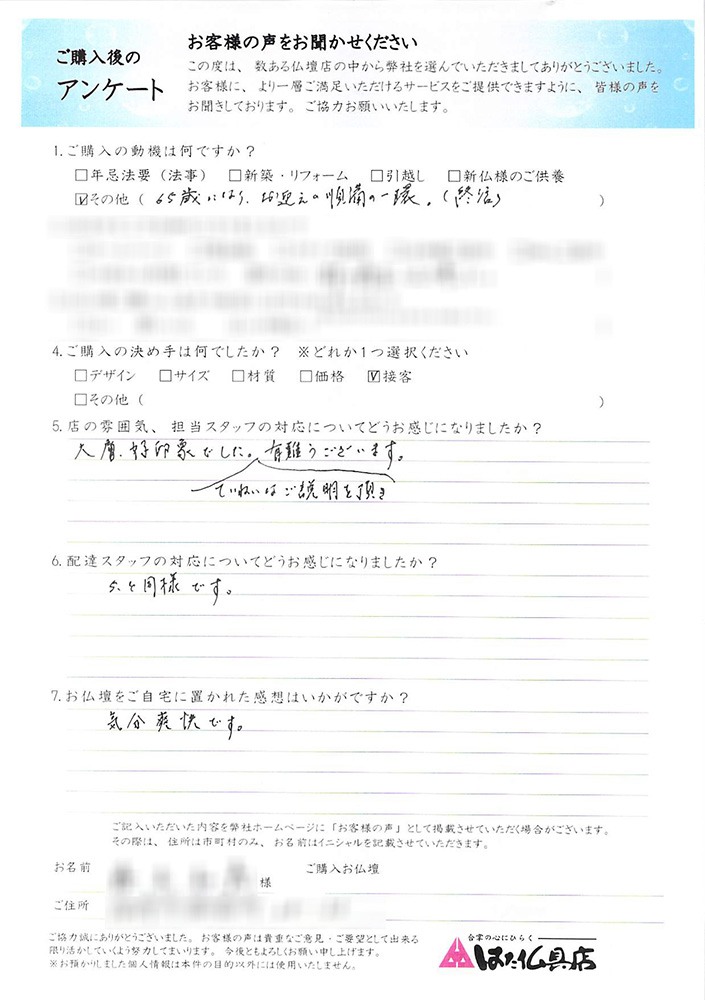 ご購入後の
アンケート
お客様の声をお聞かせください
この度は、数ある仏壇店の中から弊社を選んでいただきましてありがとうございました。
お客様に、より一層ご満足いただけるサービスをご提供できますように、皆様の声を
お聞きしております。ご協力お願いいたします。
1.ご購入の動機は何ですか?
□年忌法要(法事) □新築・リフォーム □引越し □新仏様のご供養
☑その他( 65歳になり、お迎えの準備の一環。(終活) )
4.ご購入の決め手は何でしたか? ※どれか1つ選択ください
□デザイン □サイズ □材質 □価格 ☑接客
□その他( )
5.店の雰囲気、担当スタッフの対応についてどうお感じになりましたか?
大層、好印象でした。有難うございます。
ていねいなご説明を頂き
6.配達スタッフの対応についてどうお感じになりましたか?
5.と同様です。
7.お仏壇をご自宅に置かれた感想はいかがですか?
気分爽快です。
ご記入いただいた内容を弊社ホームページに「お客様の声」として掲載させていただく場合がございます。
その際は、住所は市町村のみ、お名前はイニシャルを記載させていただきます。
お名前 様 ご購入お仏壇
ご住所
ご協力誠にありがとうございました。お客様の声は貴重なご意見・ご要望として出来る
限り活かしていくよう努力してまいります。今後ともよろしくお願い申し上げます。
※お預かりしました個人情報は本件の目的以外には使用いたしません。
合掌の心にひらく
はた仏具店